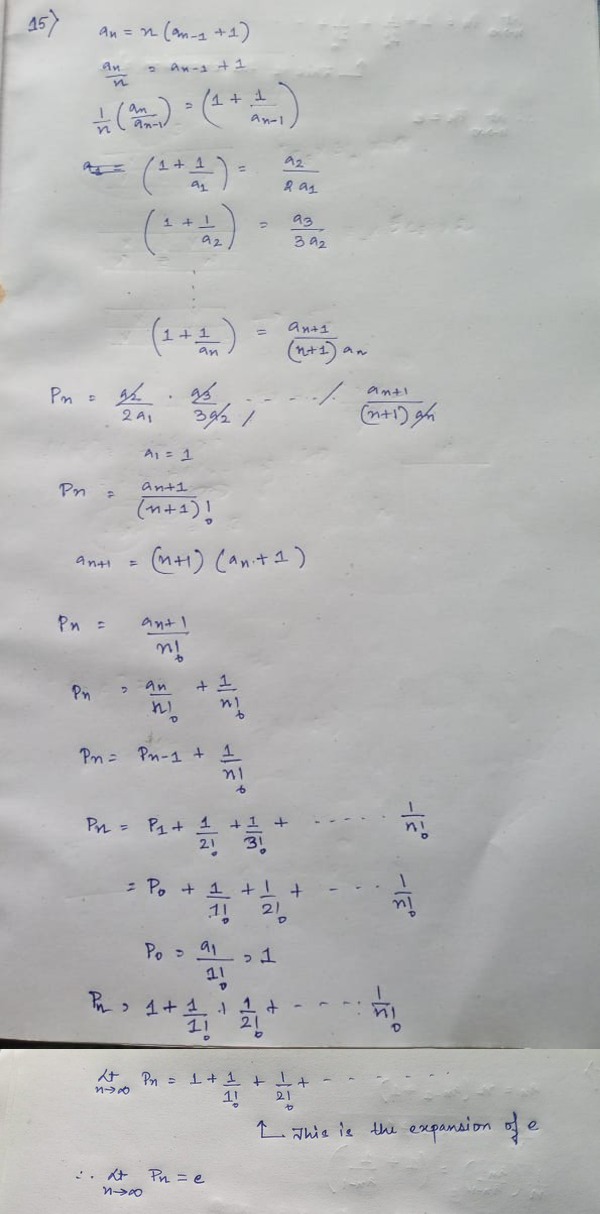 15)
aₙ = n (aₙ₋₁ + 1)
aₙ/n = aₙ₋₁ + 1
1/n (aₙ/aₙ₋₁) = (1 + 1/aₙ₋₁)
a₁ = (1 + 1/a₁) = a₂/2a₁
(1 + 1/a₂) = a₃/3a₂
⋮
(1 + 1/aₙ) = aₙ₊₁/(n+1)aₙ
Pₙ = a₂/2a₁ · a₃/3a₂, ----- / · aₙ₊₁/(n+1)aₙ
a₁ = 1
Pₙ = aₙ₊₁/(n+1)!
aₙ₊₁ = (n+1) (aₙ + 1)
Pₙ = aₙ+1/n!
Pₙ = aₙ/n! + 1/n!
Pₙ = Pₙ₋₁ + 1/n!
Pₙ = P₁ + 1/2! + 1/3! + ----- 1/n!
= P₀ + 1/1! + 1/2! + ---- 1/n!
P₀ = a₁/1! = 1
Pₙ = 1 + 1/1! + 1/2! + ----- 1/n!
Lt n→∞ Pₙ = 1 + 1/1! + 1/2! + -------
↑ This is the expansion of e
∴ Lt n→∞ Pₙ = e